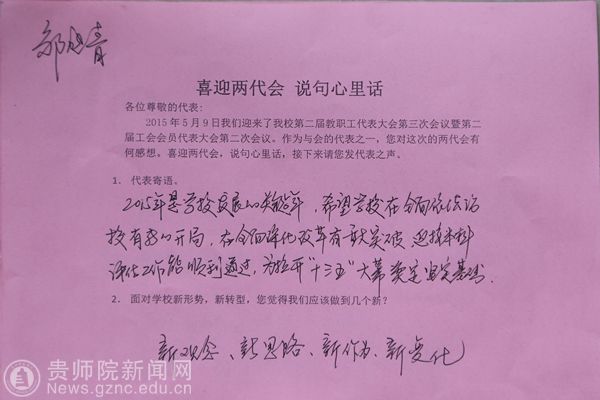 喜迎两代会 说句心里话
各位尊敬的代表：
2015年5月9日我们迎来了我校第二届教职工代表大会第三次会议暨第二
届工会会员代表大会第二次会议。作为与会的代表之一，您对这次的两代会有
何感想。喜迎两代会，说句心里话，接下来请您发代表之声。
1．代表寄语。
2015年是学校发展的关键年，希望学校在全面依法治
校有新的开局，在全面深化改革有新突破，迎接本科
评估工作能顺利通过，为拉开“十三五”大幕奠定坚实基础.
2．面对学校新形势，新转型，您觉得我们应该做到几个新？
新观念、新思路、新作为、新变化
贵师院新闻网
News.gznc.edu.cn